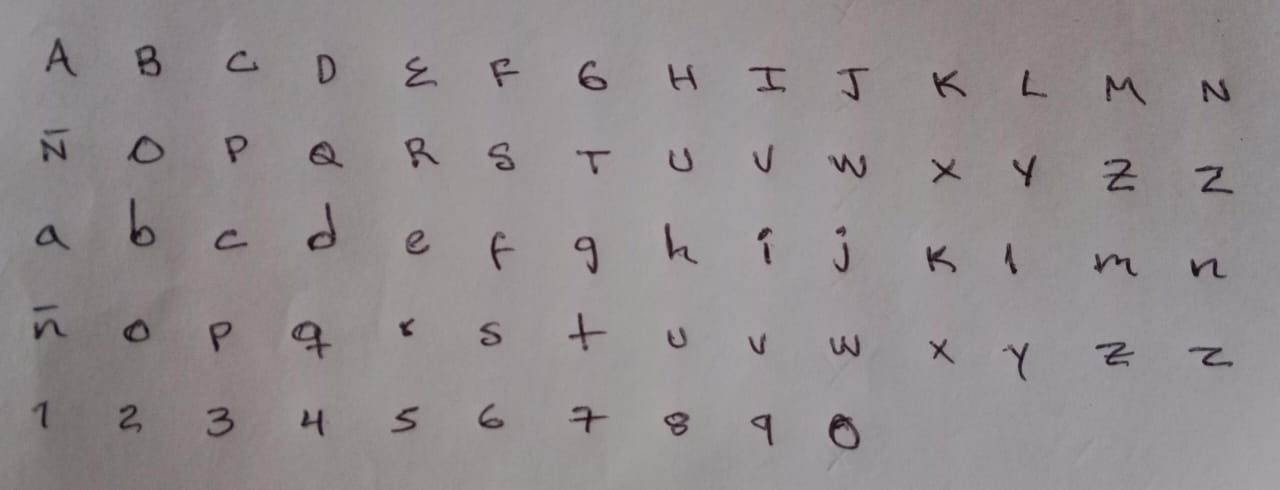 A B C D E F G H I J K L M N
Ñ O P Q R S T U V W X Y Z Z
a b c d e f g h i j k l m n
ñ o p q r s t u v w x y z z
1 2 3 4 5 6 7 8 9 0